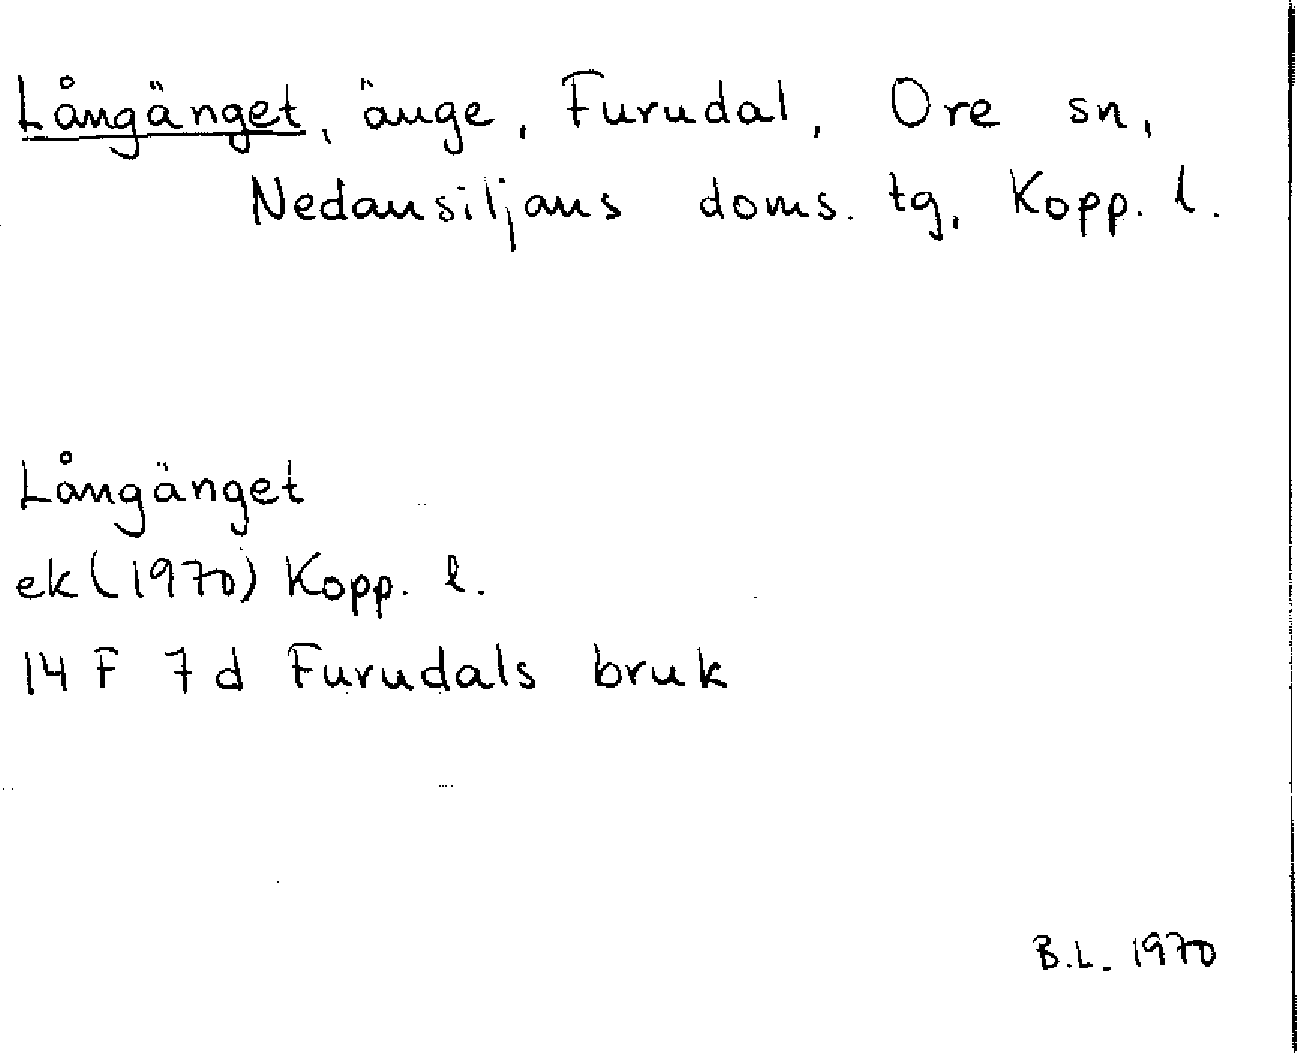 Långänget, änge, Furudal, Ore sn,
Nedansiljans doms. tg, Kopp. l.
Långänget
ek (1970) Kopp. l.
14 F 7 d Furudals bruk
B.L. 1970